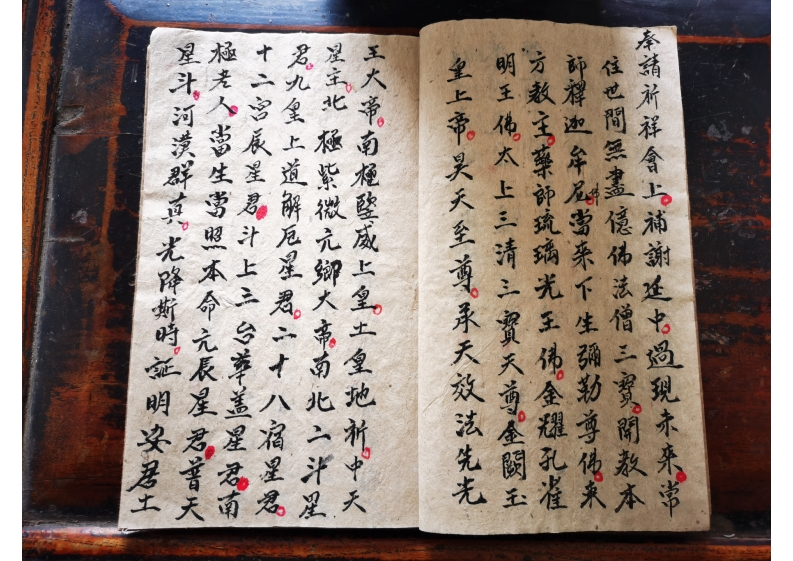 奉請祈祥會上補謝廷中過現未來常
住世間無盡億佛法僧三寶開教本
師釋迦牟尼佛當來下生彌勒尊佛東
方教主藥師琉璃光王佛金耀孔雀
明王佛太上三清三寶天尊金闕玉
皇上帝昊天至尊承天效法先光
王大帝南極堅威上皇土皇地祈中天
星主北極紫微元鄉大帝南北二斗星
君九皇上道解厄星君二十八宿星君
十二宮辰星君斗上三台華盖星君南
極老人當生當照本命元辰星君普天
星斗河漢群真光降斯時証明安居土